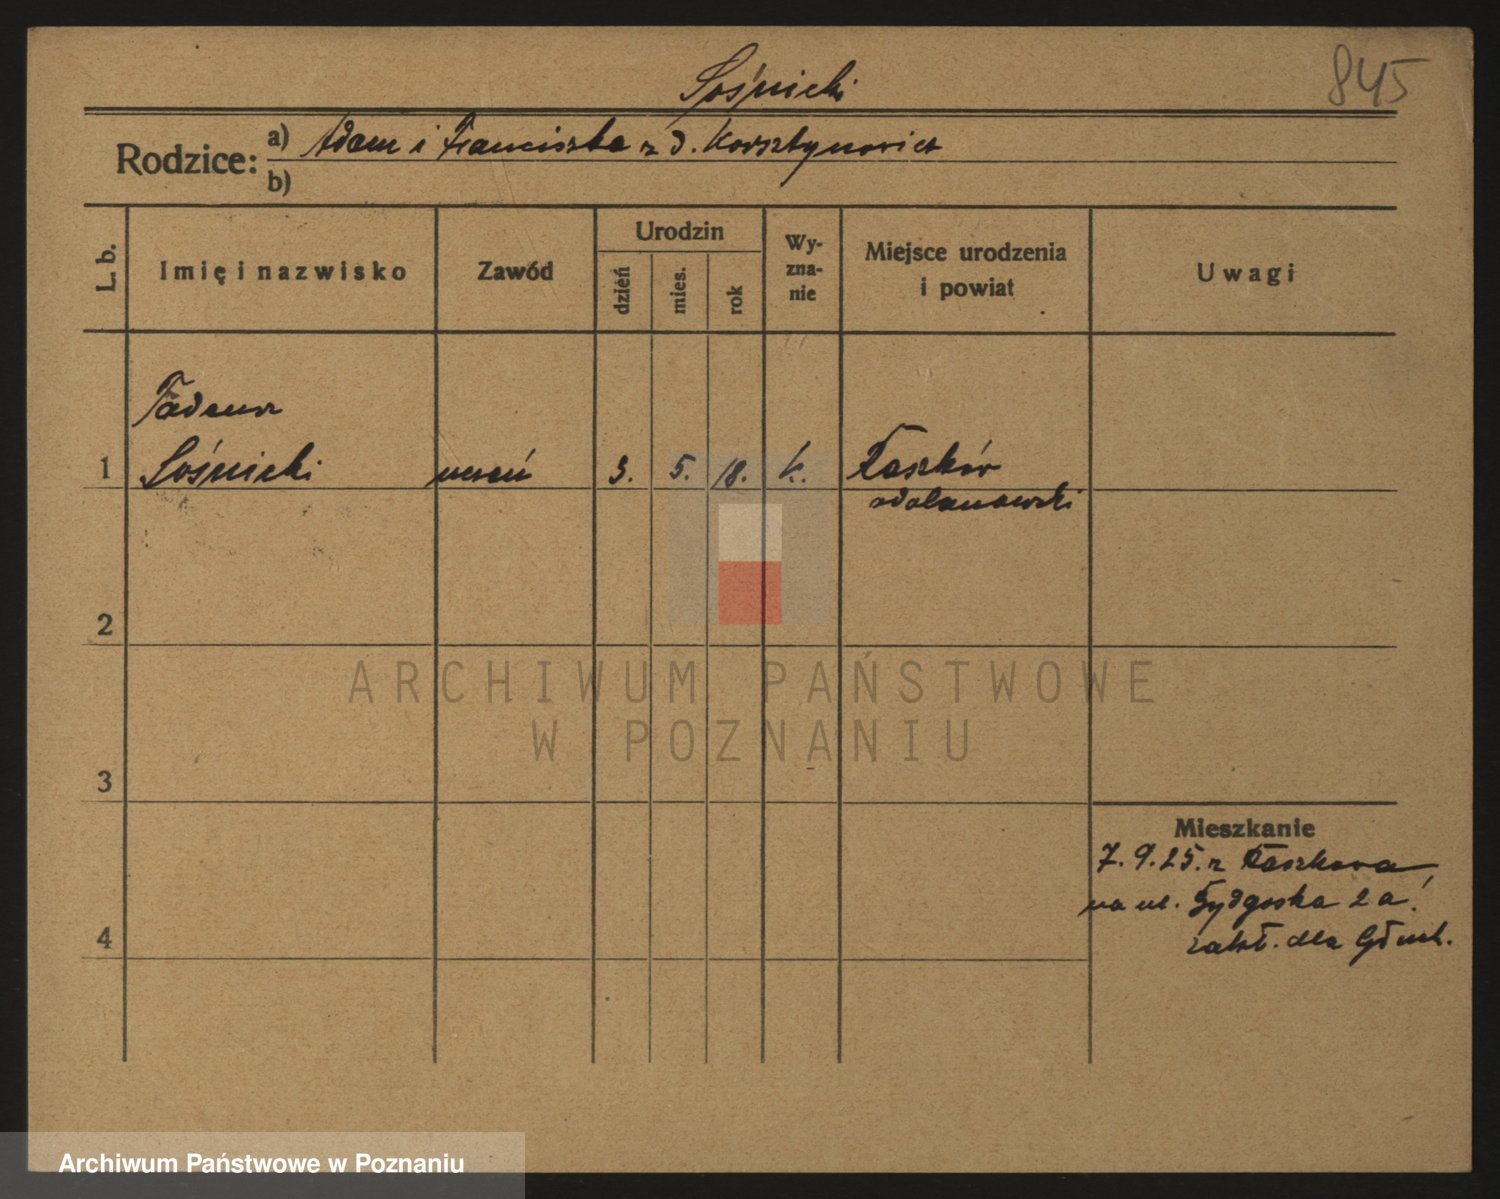 Sośnicki
845
Rodzice: a) Adam i Franciszka z d. Korsztynowicz
b)
L. b.
Imię i nazwisko
Zawód
Urodzin
dzień
mies.
rok
Wy-
zna-
nie
Miejsce urodzenia
i powiat
Uwagi
Tadeusz
1 Sośnicki uczeń 3. 5. 18. k. Raszków
odolanowski
2
3
4
Mieszkanie
7. 9. 25. z Raszkowa,
na ul. Bydgoska 2a!
zakł. dla Głuch.
ARCHIWUM PAŃSTWOWE
W POZNANIU
Archiwum Państwowe w Poznaniu